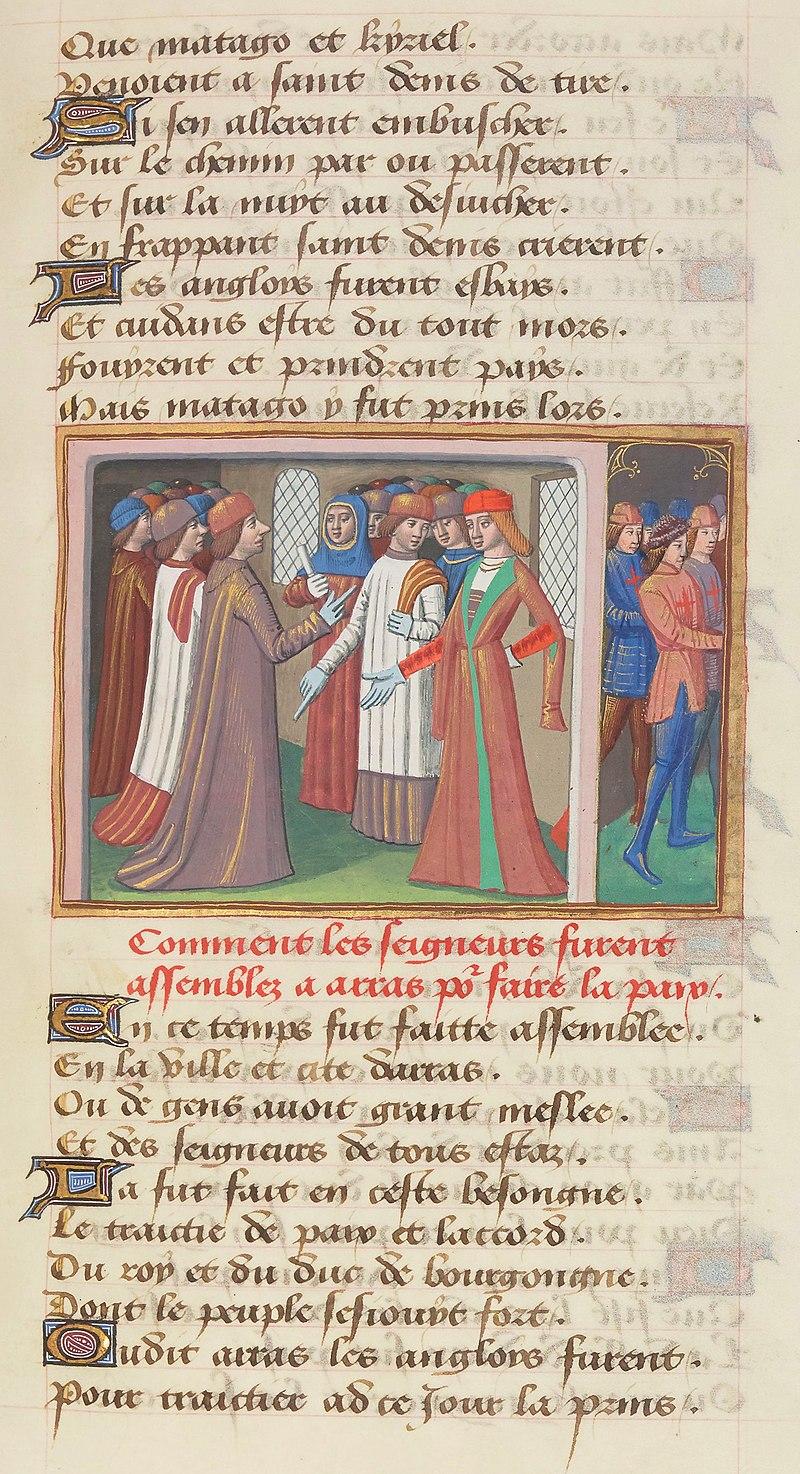 Que matago et kyriel.
Venoient a saint denis de tire.
Si sen allerent embuscher.
Sur le chemin par ou passerent.
Et sur la nuyt au desiucher.
En frappant saint denis crierent.
Les angloys furent esbays.
Et cuidans estre du tout mors.
Fouyrent et prindrent pays.
Mais matago y fut prins lors.
Comment les seigneurs furent
assemblez a arras por faire la paix.
En ce temps fut faitte assemblee.
En la ville et cite darras.
Ou de gens auoit grant meslee.
Et des seigneurs de tous estaz.
La fut fait en ceste besongne.
Le traictie de paix et laccord.
Du roy et du duc de bourgongne.
Dont le peuple sesiouyt fort.
Oudit arras les angloys furent.
Pour traictier ad ce Jour la prins.